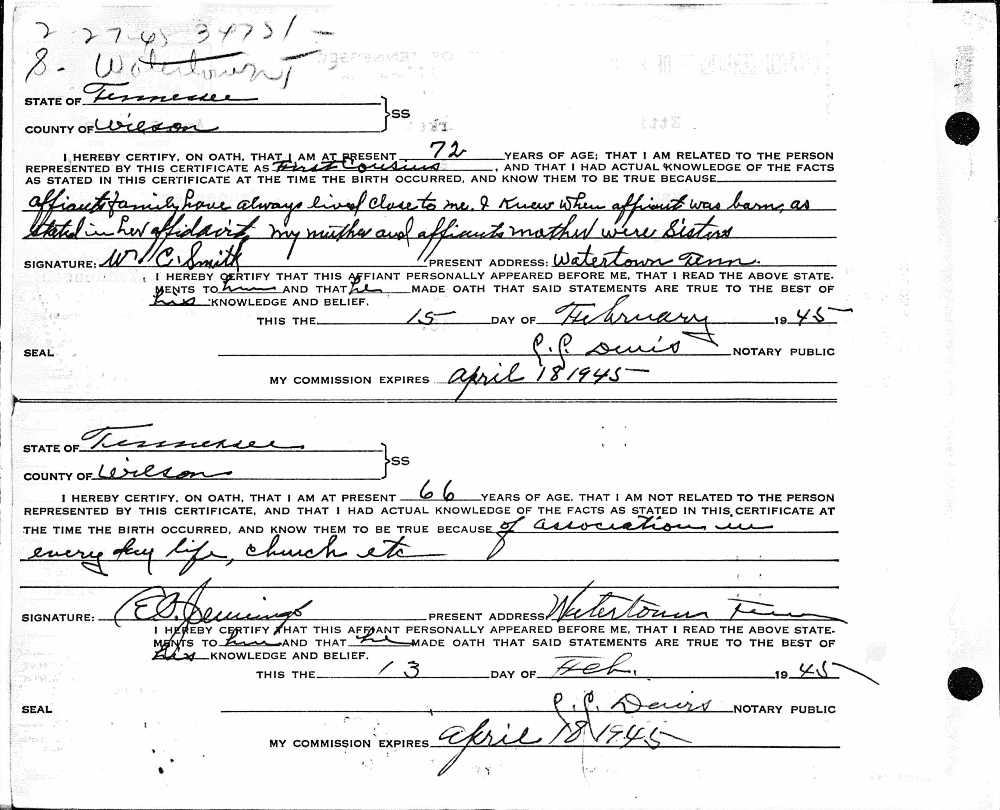 2 27 45 34731 -
8 - Watertown T
STATE OF Tennessee
SS
COUNTY OF Wilson
I HEREBY CERTIFY, ON OATH, THAT I AM AT PRESENT 72 YEARS OF AGE; THAT I AM RELATED TO THE PERSON
REPRESENTED BY THIS CERTIFICATE AS First Cousins, AND THAT I HAD ACTUAL KNOWLEDGE OF THE FACTS
AS STATED IN THIS CERTIFICATE AT THE TIME THE BIRTH OCCURRED, AND KNOW THEM TO BE TRUE BECAUSE
affiants family have always lived close to me. I Knew when affiant was born, as
stated in her affidavit. my mother and affiants mother were Sisters
SIGNATURE: W. C. Smith PRESENT ADDRESS: Watertown Tenn.
I HEREBY CERTIFY THAT THIS AFFIANT PERSONALLY APPEARED BEFORE ME, THAT I READ THE ABOVE STATE-
MENTS TO him AND THAT he MADE OATH THAT SAID STATEMENTS ARE TRUE TO THE BEST OF
his KNOWLEDGE AND BELIEF.
THIS THE 15 DAY OF February 19 45
SEAL Davis NOTARY PUBLIC
MY COMMISSION EXPIRES April 18 1945
STATE OF Tennessee
SS
COUNTY OF Wilson
I HEREBY CERTIFY, ON OATH, THAT I AM AT PRESENT 66 YEARS OF AGE, THAT I AM NOT RELATED TO THE PERSON
REPRESENTED BY THIS CERTIFICATE, AND THAT I HAD ACTUAL KNOWLEDGE OF THE FACTS AS STATED IN THIS CERTIFICATE AT
THE TIME THE BIRTH OCCURRED, AND KNOW THEM TO BE TRUE BECAUSE of association in
every day life, church etc
SIGNATURE: Jennings PRESENT ADDRESS Watertown Tenn
I HEREBY CERTIFY THAT THIS AFFIANT PERSONALLY APPEARED BEFORE ME, THAT I READ THE ABOVE STATE-
MENTS TO him AND THAT he MADE OATH THAT SAID STATEMENTS ARE TRUE TO THE BEST OF
his KNOWLEDGE AND BELIEF.
THIS THE 13 DAY OF Feb. 19 45
SEAL Davis NOTARY PUBLIC
MY COMMISSION EXPIRES April 18 1945